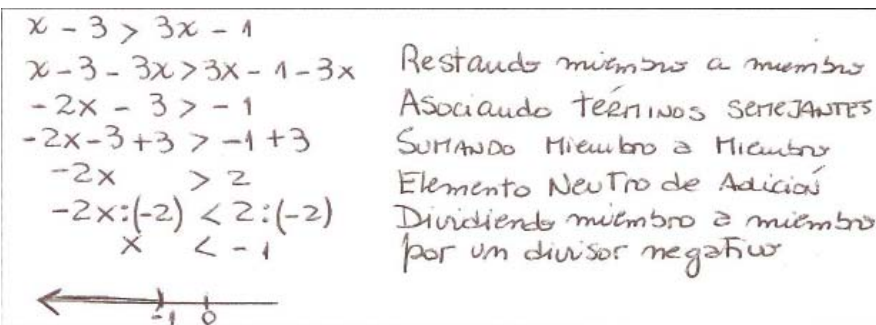 x - 3 > 3x - 1
x - 3 - 3x > 3x - 1 - 3x Restando miembro a miembro
-2x - 3 > -1 Asociando TÉRMINOS SEMEJANTES
-2x - 3 + 3 > -1 + 3 SUMANDO Miembro a Miembro
-2x > 2 Elemento NeuTro de Adición
-2x:(-2) < 2:(-2) Dividiendo miembro a miembro
x < -1 por un divisor negativo
-1 0